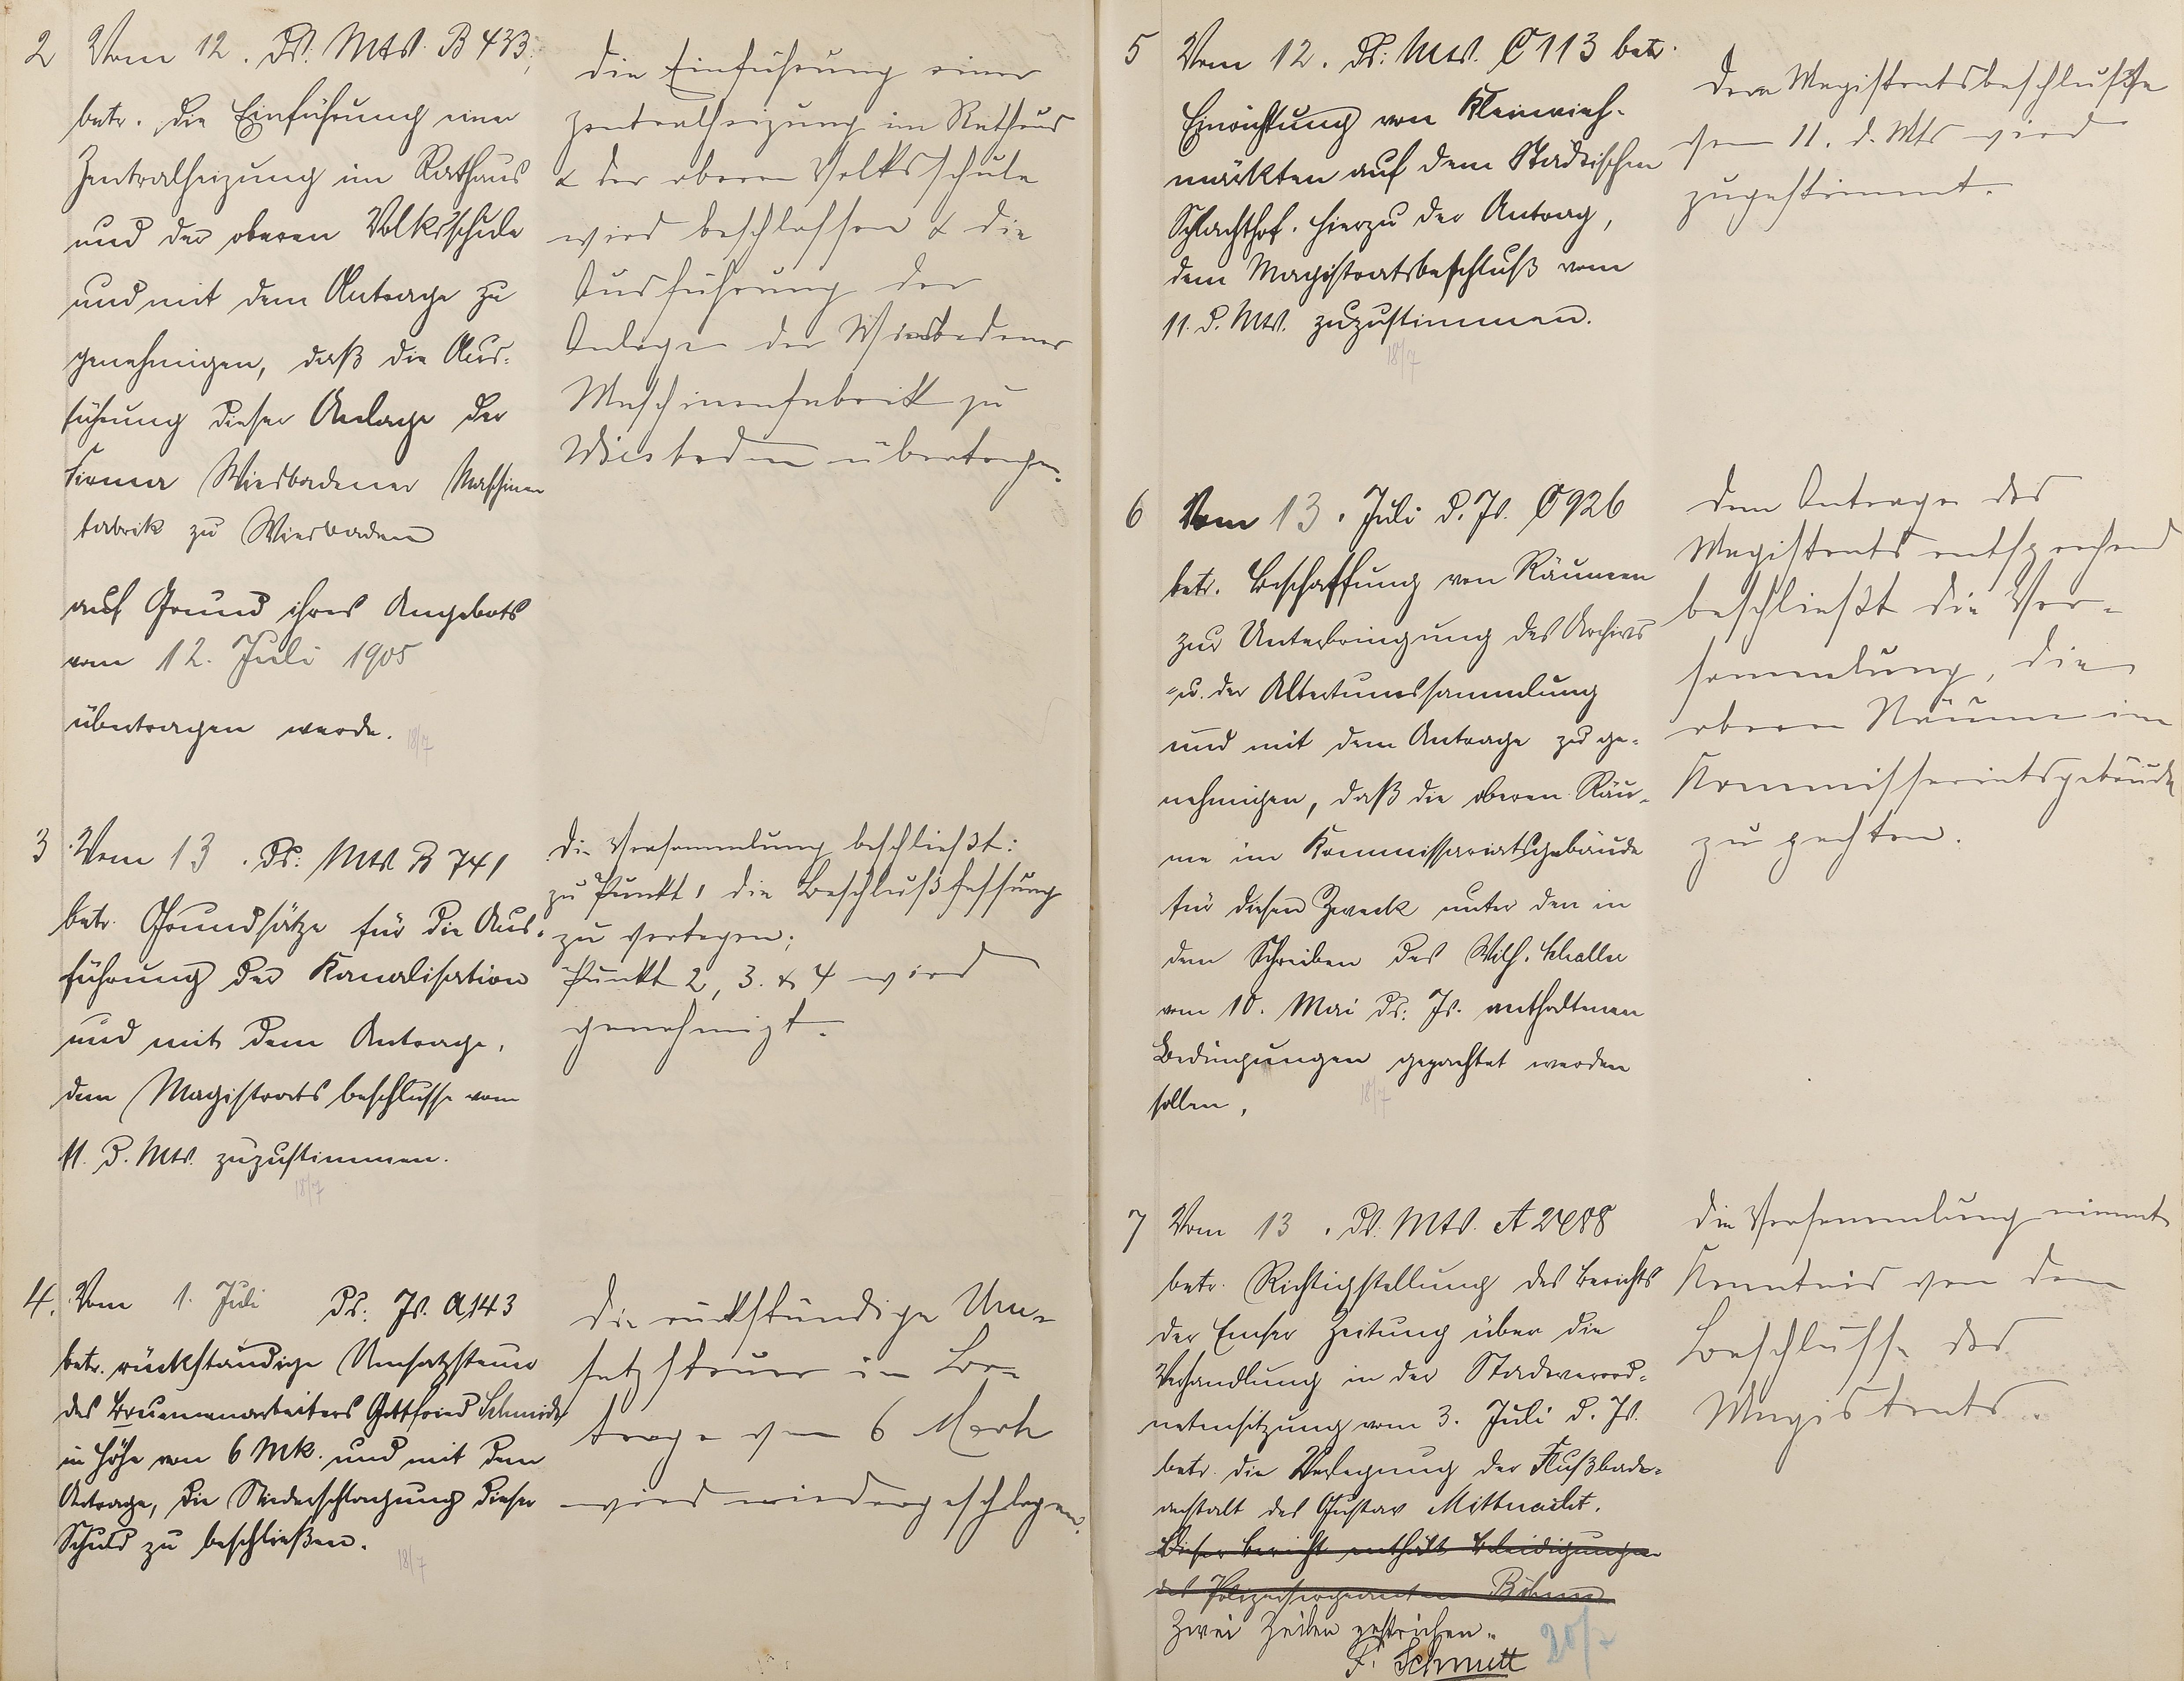 2 Vom 12. ds. Mts. B 433,
betr. die Einführung einer
Zentralheizung im Rathaus
und der oberen Volksschule
und mit dem Antrage zu
genehmigen, daß die Aus-
führung dieser Anlage der
Firma Wiesbadener Maschinen
fabrik zu Wiesbaden
auf Grund ihres Angebots
vom 12. Juli 1905
übertragen werde.
18/7
Die Einführung einer
Zentralheizung im Rathaus
& der oberen Volksschule
wird beschlossen & die
Ausführung der
Anlage der Wiesbadener
Maschinenfabrik zu
Wiesbaden übertragen.
3 Vom 13. ds. Mts. B 741
betr. Grundsätze für die Aus-
führung der Kanalisation
und mit dem Antrage,
dem Magistratsbeschlusse vom
11. d. Mts. zuzustimmen.
18/7
Die Versammlung beschließt:
zu Punkt 1 die Beschlußfassung
zu vertagen;
Punkt 2, 3. & 4 wird
genehmigt.
4. Vom 1. Juli ds. Js. A 143
betr. rückständige Umsatzsteuer
des Brunnenarbeiters Gottfried Schmidt
in Höhe von 6 Mk. und mit dem
Antrage, die Niederschlagung dieser
Schuld zu beschließen.
18/7
Die rückständige Um-
satzsteuer im Be-
trage von 6 Mark
wird niedergeschlagen.
5 Vom 12. ds. Mts. C 113 betr.
Einrichtung von Kleinvieh-
märkten auf dem Städtischen
Schlachthof. Hierzu der Antrag,
dem Magistratsbeschluß vom
11. d. Mts. zuzustimmen.
18/7
Dem Magistratsbeschlusse
vom 11. d. Mts wird
zugestimmt.
6 Vom 13. Juli d. Js. C 926
betr. Beschaffung von Räumen
zur Unterbringung des Archivs
u. der Altertumssammlung
und mit dem Antrage zu ge-
nehmigen, daß die oberen Räu-
me im Kommissariatsgebäude
für diesen Zweck unter den in
dem Schreiben des Wilh.
vom 10. Mai ds. Js. enthaltenen
Bedingungen gepachtet werden
sollen,
18/7
Dem Antrage des
Magistrats entsprechend
beschließt die Ver-
sammlung, die
oberen Räume im
Kommissariatsgebäude
zu pachten.
7 Vom 13. ds. Mts. A
betr. Richtigstellung des Berichts
der Emser Zeitung über die
Verhandlung in der Stadtverord-
netensitzung vom 3. Juli d. Js.
betr. die Verlegung der Flußbade-
anstalt des Gustav Mittnacht.
Dieser Bericht enthält Beleidigungen
des Polizeisergeanten Böhm
Zwei Zeilen gestrichen.
F. Schmitt
20/7
Die Versammlung nimmt
Kenntnis von dem
Beschlusse des
Magistrats.